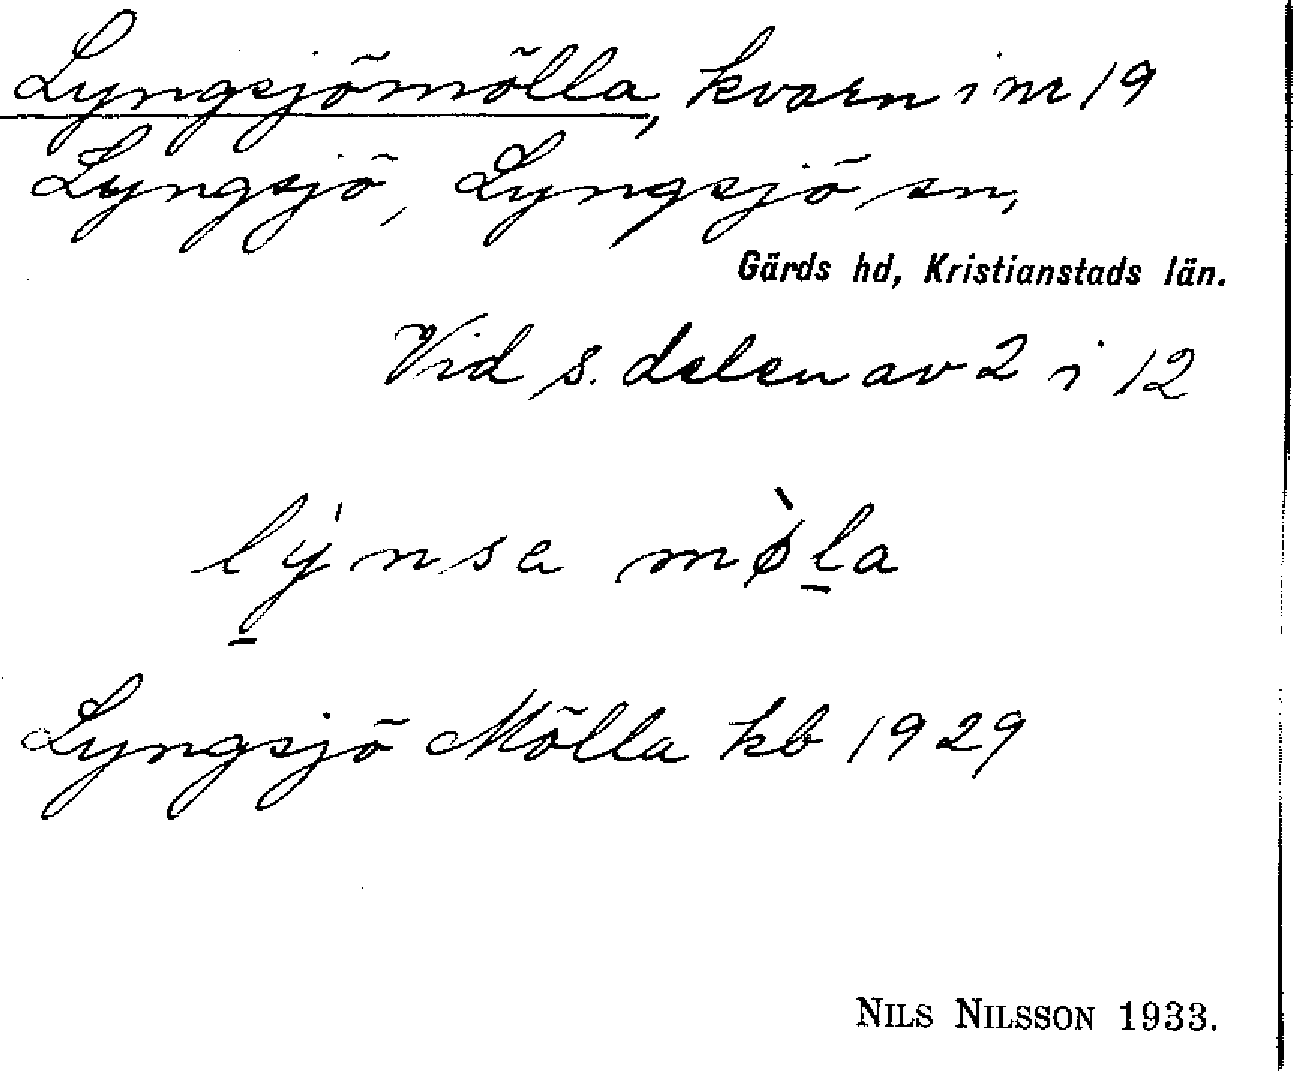 Lyngsjömölla, kvarn i nr 19
Lyngsjö, Lyngsjö sn,
Gärds hd, Kristianstads län.
Vid s. delen av 2 i 12
lýnsa mø̀la
Lyngsjö Mölla kb 1929
NILS NILSSON 1933.